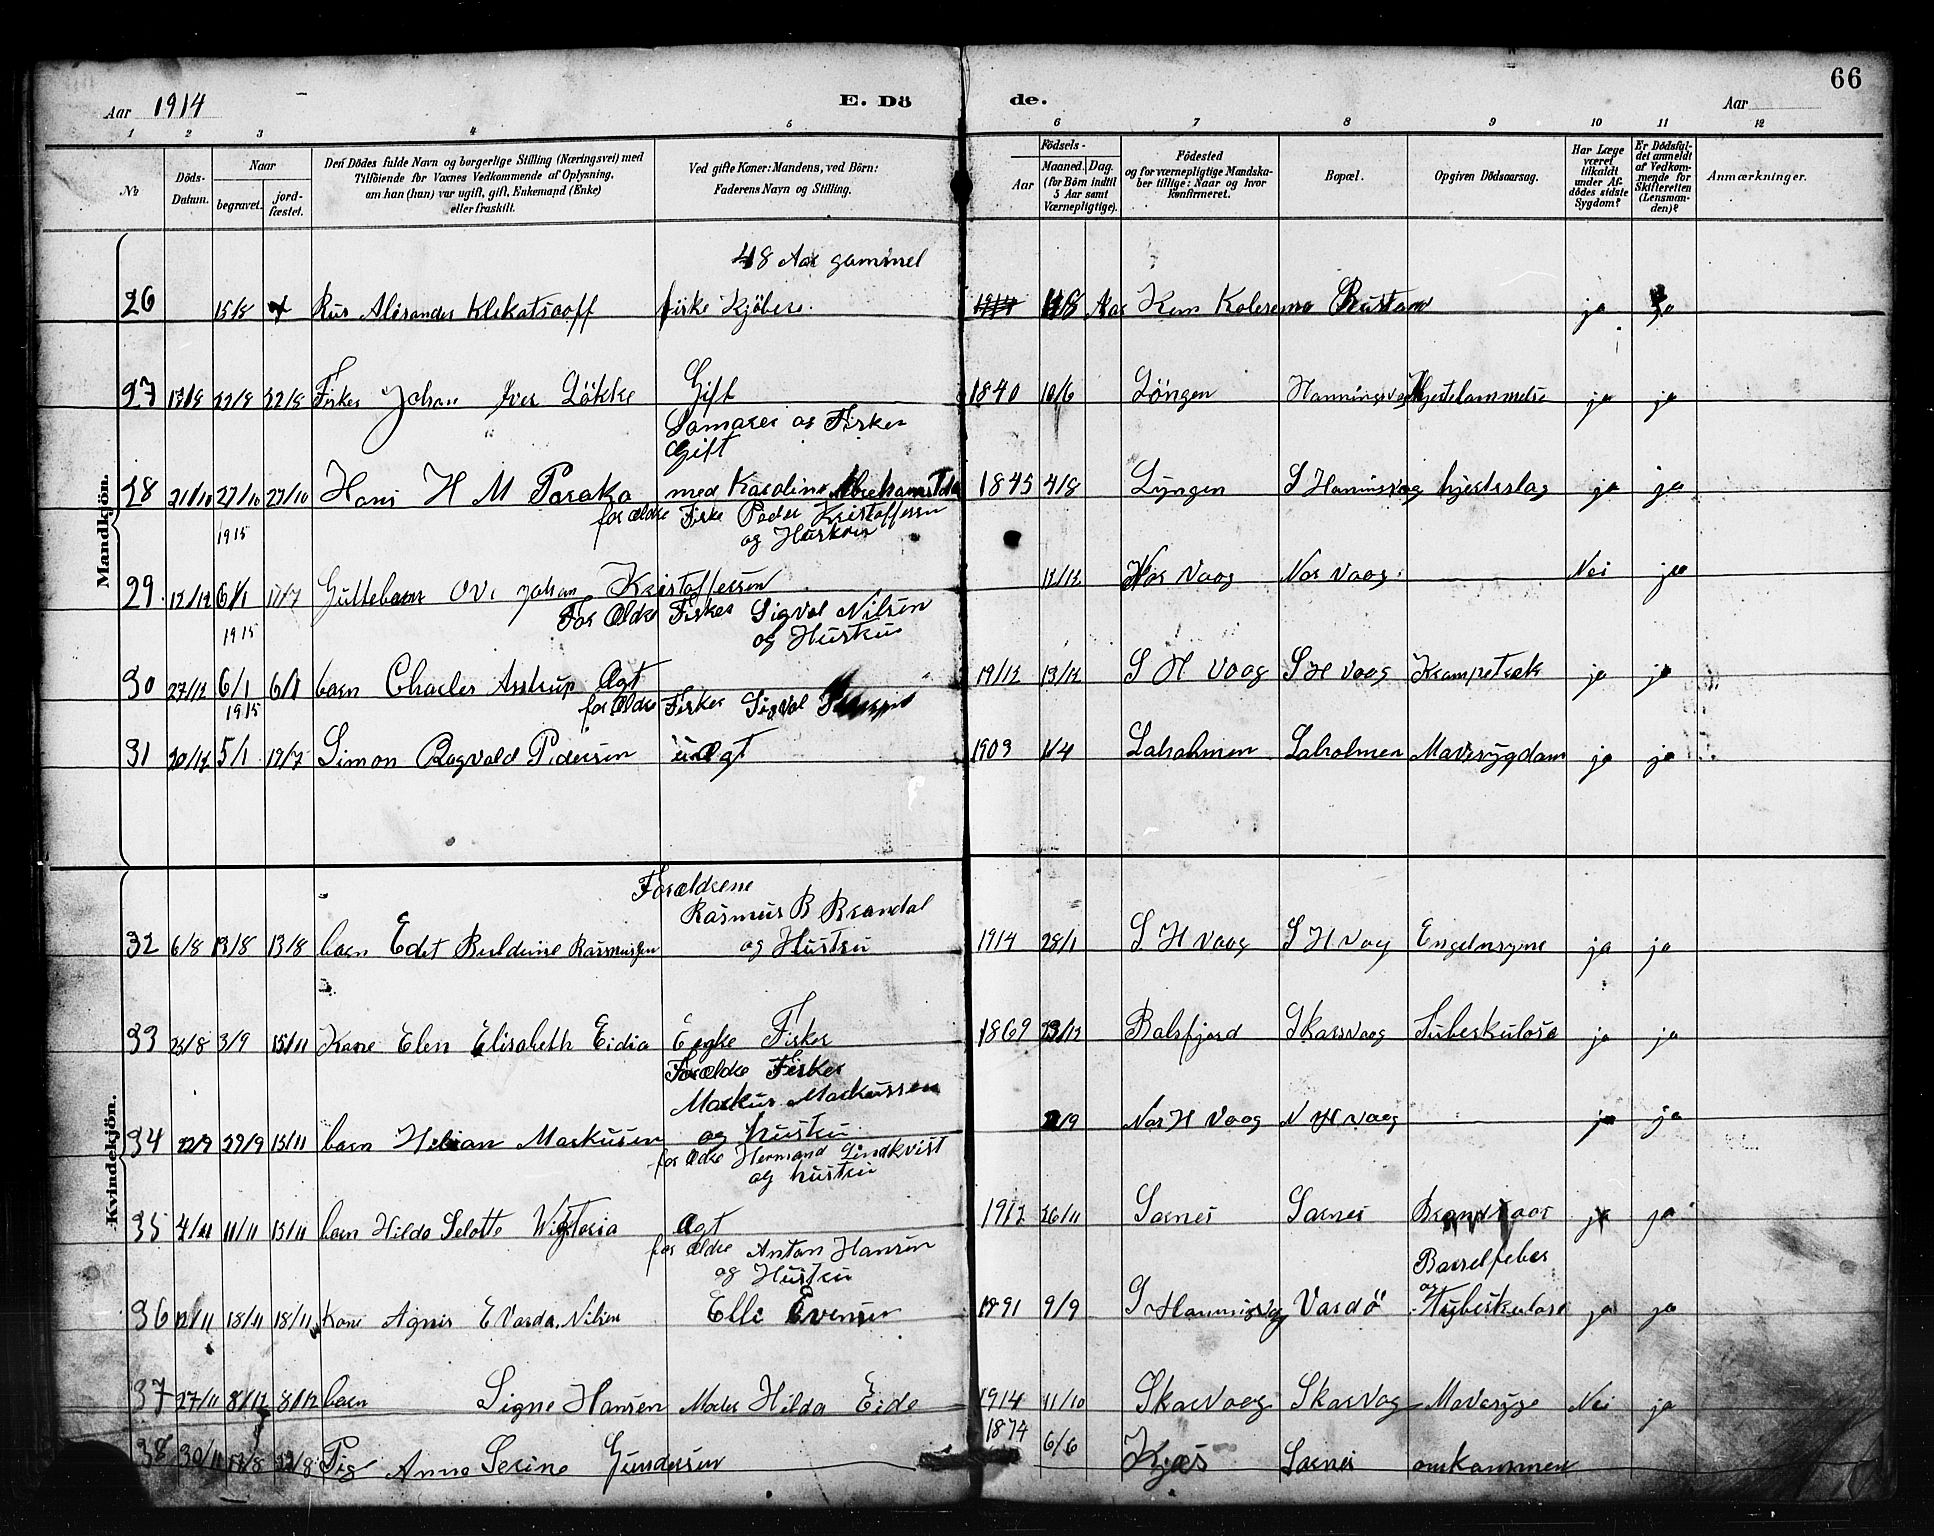 66
Aar 1914 E. Dö de. Aar
1 2 3 4 5 6 7 8 9 10 11 12
No Döds-Datum. Naar begravet. jord-fæstet. Den Dödes fulde Navn og borgerlige Stilling (Næringsvei) med Tilföiende for Voxnes Vedkommende af Oplysning, om han (hun) var ugift, gift, Enkemand (Enke) eller fraskilt. Ved gifte Koner: Mandens, ved Børn: Faderens Navn og Stilling. Födsels- Aar Maaned. Dag. (for Börn indtil 5 Aar samt Værnepligtige). Födested og for værnepligtige Mandskaber tillige: Naar og hvor konfirmeret. Bopæl. Opgiven Dödsaarsag. Har Læge været tilkaldt under Afdödes sidste Sygdom? Er Dödsfaldet anmeldt af Vedkommende for Skifteretten (Lensmanden)? Anmærkninger.
Mandkjön.
48 Aar gammel
26 15/8 Rus Alexander Klekatsooff fiske Kjöbere. 48 Aar Kem Rusland ja ja
27 17/8 22/8 22/8 Fisker Johan Iver Lökke Gift 1840 10/6 Löngen Honningsvog Hjertelammelse ja ja
Somarer og Fisker
Gift
28 21/10 27/10 27/10 Hans H M Poroka med Karoline 1845 4/8 Lyngen S Honinsvog hjerteslag ja ja
for ældre Fiske Peder Kristoffersen
1915 og Huskru
29 12/12 6/1 17/7 Guttebarn Ove Johan Kristoffersen 12/12 Nor Vaag Nor Vaag Nei ja
For Ældre Fisker Sigval Nilsen
1915 og Hustru
30 27/12 6/1 6/1 barn Charles Astrup Ægt 19/12 19/12 S H Vaag S H Vaag Krampetræk ja ja
1915 for Ældre Fisker Sigval
31 20/12 5/1 17/7 Simon Ragvald Pedersen uægt 1909 1/4 Laholmen Laholmen Mavesygdom ja ja
Kvindekjön.
Forældrene
Rasmus B Brandal
32 6/8 13/8 13/8 barn Edet Buldine Rasmussen og Hustru 1914 28/1 S H Vaag S H Vag Engelnsyme ja ja
33 25/8 3/9 15/11 Kone Elen Elisabeth Eidia Enke Fisker 1869 23/12 Balsfjord Skarsvaag Tuberkulose ja ja
Forældre Fisker
Markus Markussen
34 22/9 29/9 15/11 barn Helian Markusen og hustru 2/9 Nor H Vaag N H Vaag ja ja
for ældre Hermand Lindkvist
og hustru
35 4/11 11/11 15/11 barn Hilda Selotte Wigtoria Ægt 1912 26/11 Sarnes Sarnes Brandsaar ja ja
for ældre Anton Hansen
og Hustru
Barselfeber
36 12/11 18/11 18/11 Kone Agnes E Varda Nilsen Elle Evensen 1891 9/9 S Honningsvog Vardö og Tuberkulose ja ja
37 27/11 8/12 8/12 barn Signe Hansen Moder Hilda Eide 1914 11/10 Skarvaag Skarvag Mavesyge Nei ja
38 30/11 Pig Anna Serine Gundersen 1874 6/6 Kjæs Sarnes omkommen